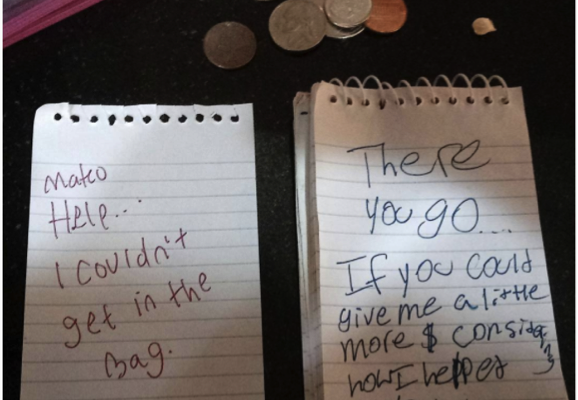 Mateo
Help...
I couldn't
get in the
Bag.
There
you go....
If you could
give me a little
more $ considering
how I helped